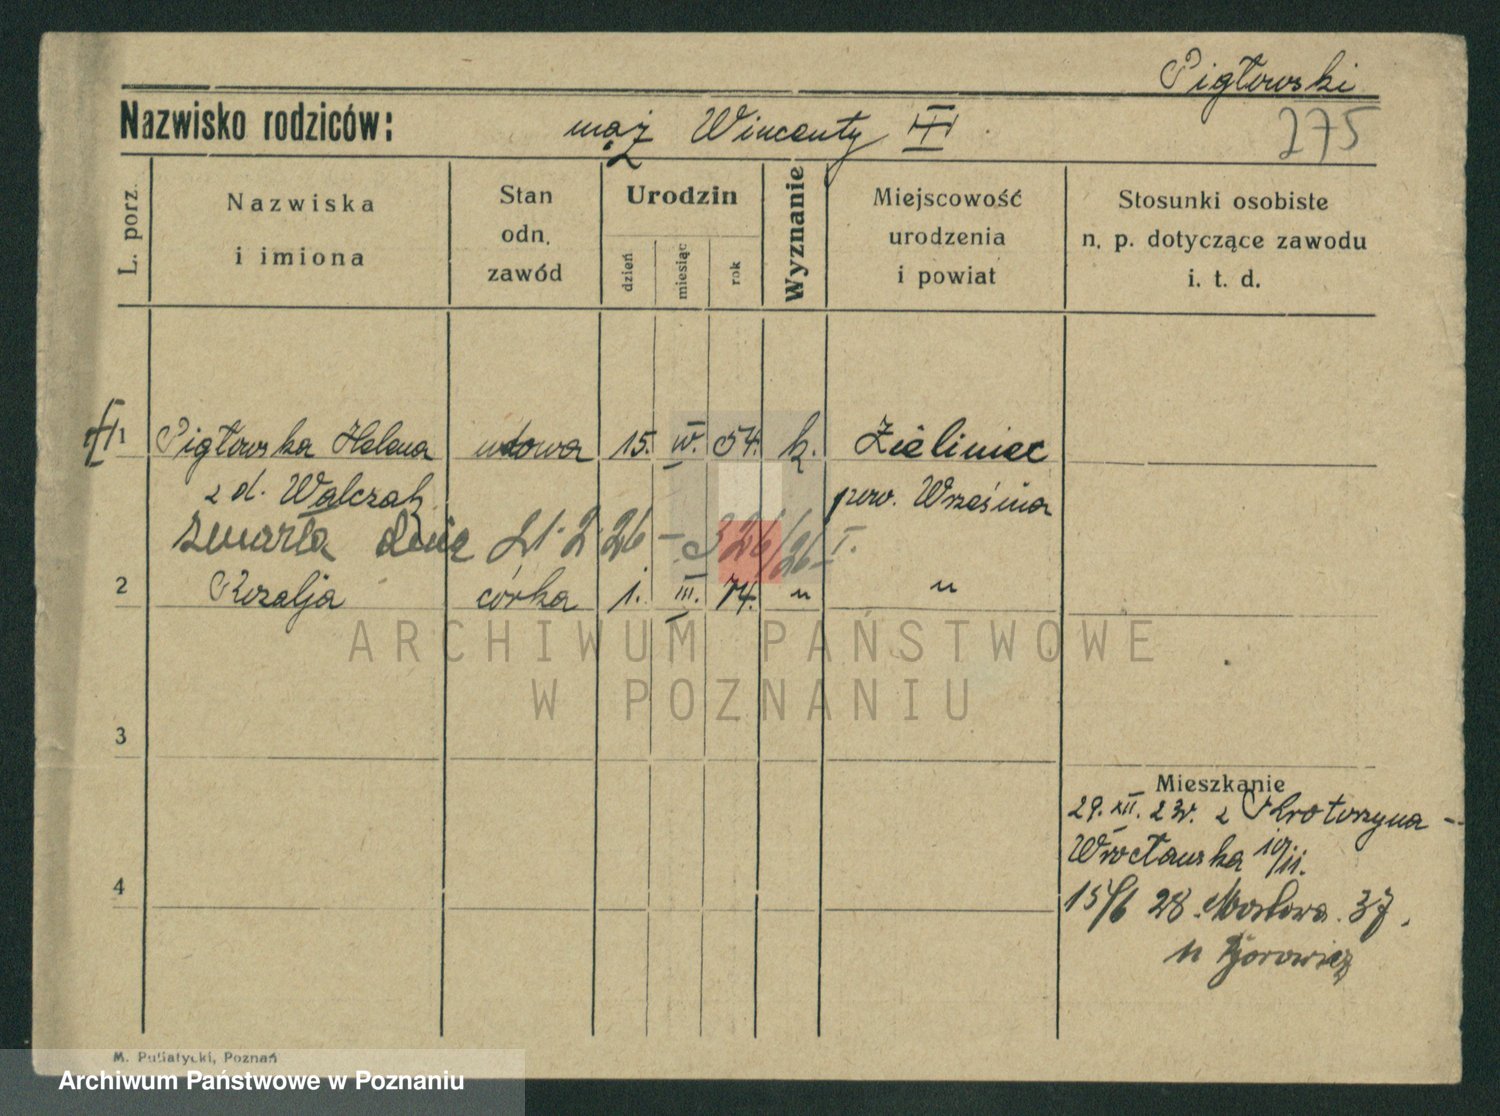 Pigłowski
Nazwisko rodziców: mąż Wincenty III
275
L. porz. Nazwiska i imiona Stan odn. zawód Urodzin dzień miesiąc rok Wyznanie Miejscowość urodzenia i powiat Stosunki osobiste n. p. dotyczące zawodu i. t. d.
1 Pigłowska Helena wdowa 15. IV. 54. k. Zieliniec
z d. Walczak pow. Września
zmarła dnia 21.2 26 – 326/26 I.
2 Rozalja córka 1. III. 74. " "
ARCHIWUM PAŃSTWOWE
W POZNANIU
3
Mieszkanie
29. XII. 23r. z Krotoszyna –
Wrocławska 10/11.
4
15/6 28. Mostowa. 37.
u
M. Putiatycki, Poznań
Archiwum Państwowe w Poznaniu